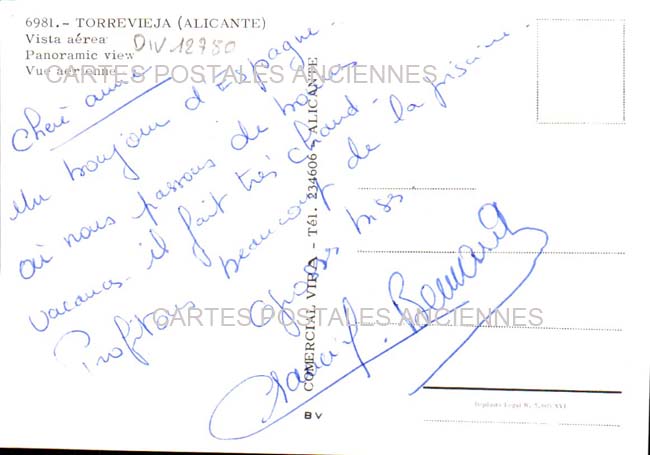 6981.- TORREVIEJA (ALICANTE)
Vista aérea
Panoramic view
Vue aérienne
DIV 12780
CARTES POSTALES ANCIENNES
Chère amie
Un bonjour d'Espagne.
où nous passons de bonnes
vacances. il fait très chaud.
Profitons beaucoup de la piscine.
Grosses bises
Bernard
COMERCIAL VIPA - Tél. 234606 - ALICANTE
CARTES POSTALES ANCIENNES
BV
Depósito Legal B.